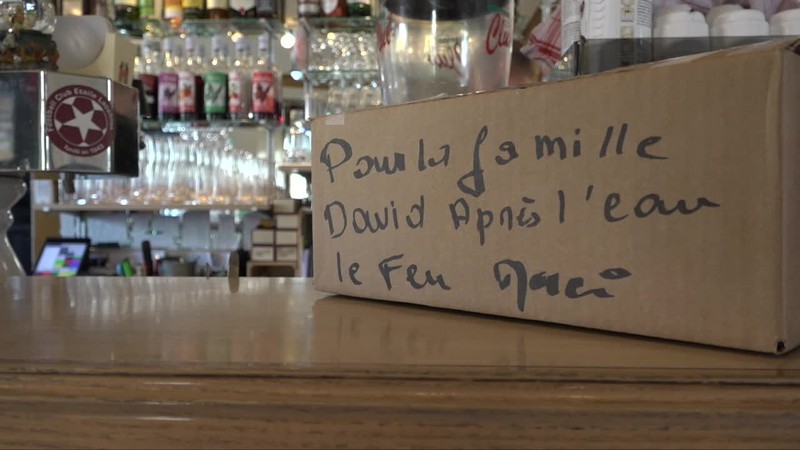 Football Club Etoile
Pour la famille
David Après l'eau
le Feu Merci